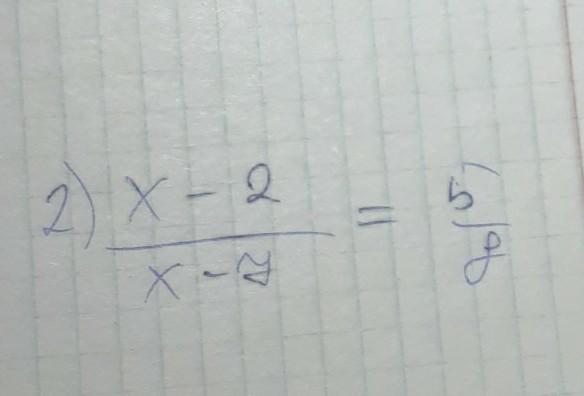 2) x - 2 / x - 7 = 5 / 8